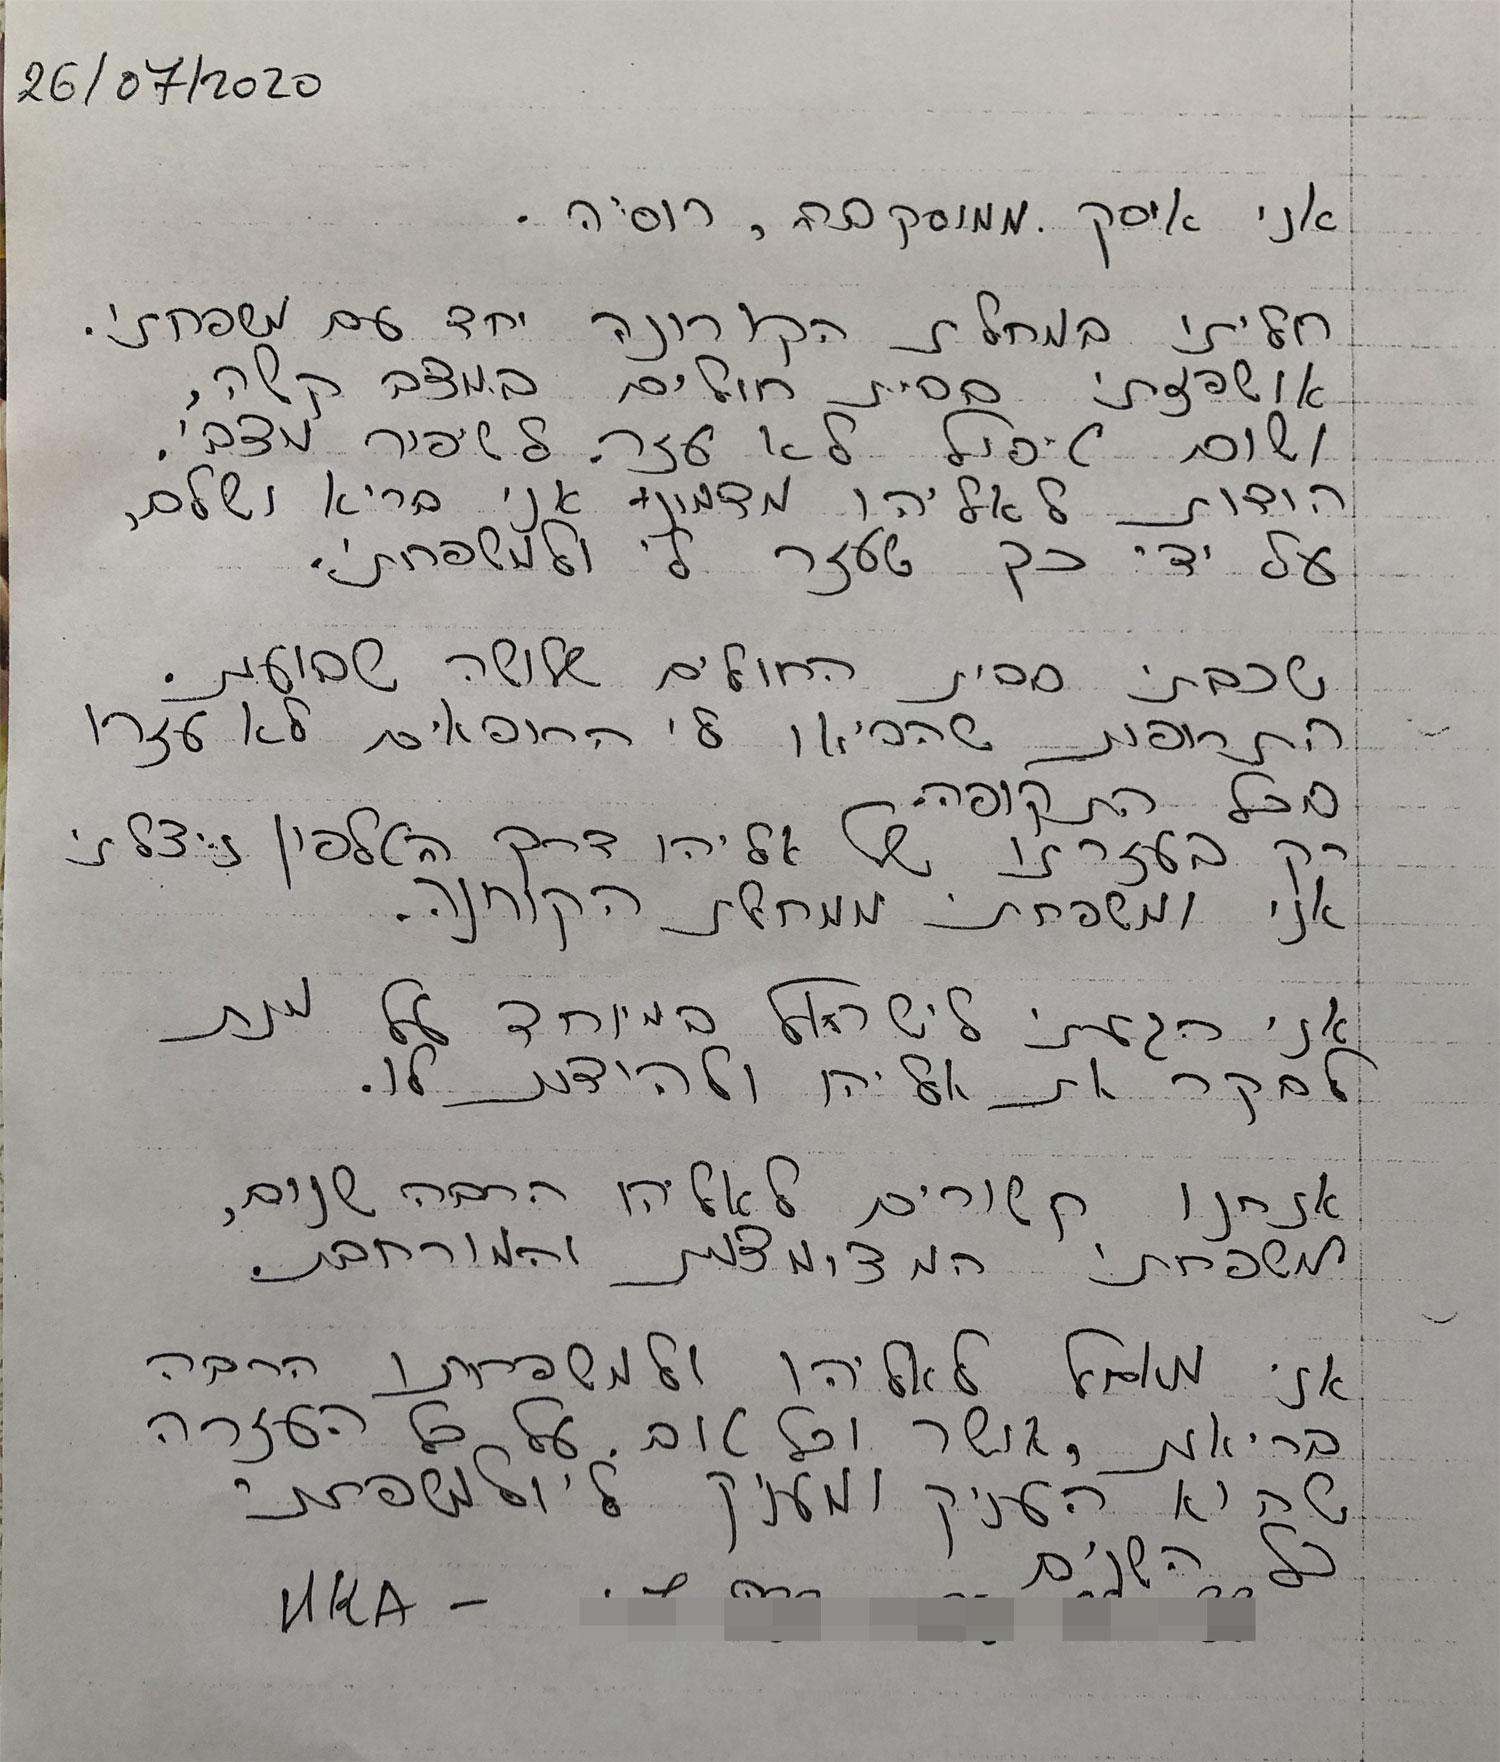 26/07/2020
אני איסק ממוסקבה, רוסיה.
חליתי במחלת הקורונה יחד עם משפחתי.
אושפזתי בבית חולים במצב קשה,
ושום טיפול לא עזר לשיפור מצבי.
הודות לאליהו אני בריא ושלם,
על ידי כך שעזר לי ולמשפחתי.
שכבתי בבית החולים שלושה שבועות.
התרופות שהביאו לי הרופאים לא עזרו
בכל התקופה.
רק בעזרתו של אליהו דרך הטלפון ניצלתי
אני ומשפחתי ממחלת הקורונה.
אני הגעתי לישראל במיוחד על מנת
לבקר את אליהו ולהודות לו.
אנחנו קשורים לאליהו הרבה שנים,
משפחתי המצומצמת והמורחבת.
אני מאחל לאליהו ולמשפחתו הרבה
בריאות, אושר וכל טוב. על כל העזרה
שהוא העניק ומעניק לי ולמשפחתי
כל השנים
ИКА -